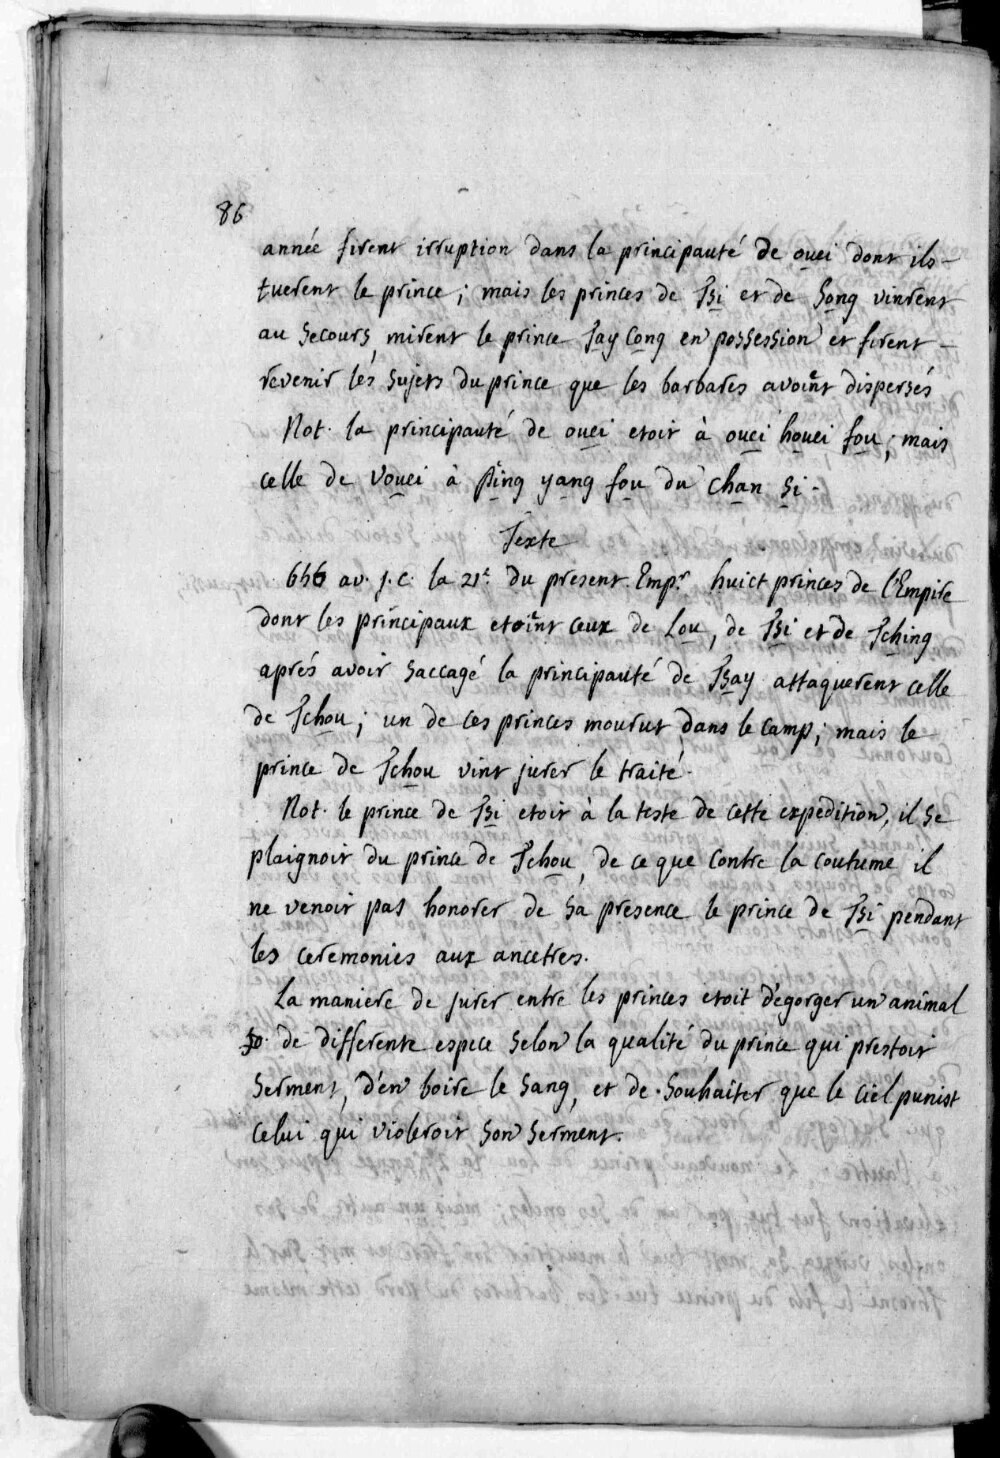 86
année firent irruption dans la principauté de ouei dont ils
tuerent le prince ; mais les princes de Tsi et de Song vinrent
au secours, mirent le prince Tay Cong en possession et firent
revenir les sujets du prince que les barbares avoint dispersés
Not. la principauté de ouei etoit à ouei houei fou ; mais
celle de vouei à Ping yang fou du Chan Si.
Texte
656 av. j. c. la 21e du present Empr huict princes de l'Empire
dont les principaux etoint ceux de Lou, de Tsi et de Tching
aprés avoir saccagé la principauté de Tsay attaquerent celle
de Tchou ; un de ces princes mourut dans le camp ; mais le
prince de Tchou vint jurer le traité.
Not. le prince de Tsi etoit à la teste de cette expedition, il se
plaignoit du prince de Tchou, de ce que contre la coutume il
ne venoit pas honorer de sa presence le prince de Tsi pendant
les ceremonies aux ancetres.
La maniere de jurer entre les princes etoit d'egorger un animal
de differente espece selon la qualité du prince qui prestoit
serment, d'en boire le sang, et de souhaiter que le ciel punist
celui qui violeroit son serment.